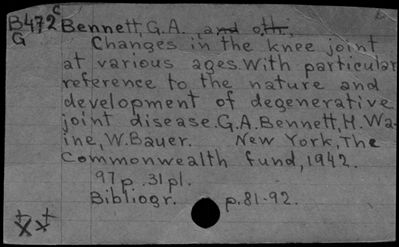 B472 c Bennett, G.A. ,and oth.,
G Changes in the knee joint
at various ages with particular
reference to the nature and
development of degenerative
joint disease. G.A.Bennett, H.Wa-
ine, W.Bauer. New York, The
Commonwealth fund, 1942.
97p. 31pl.
Bibliogr. p.81-92.